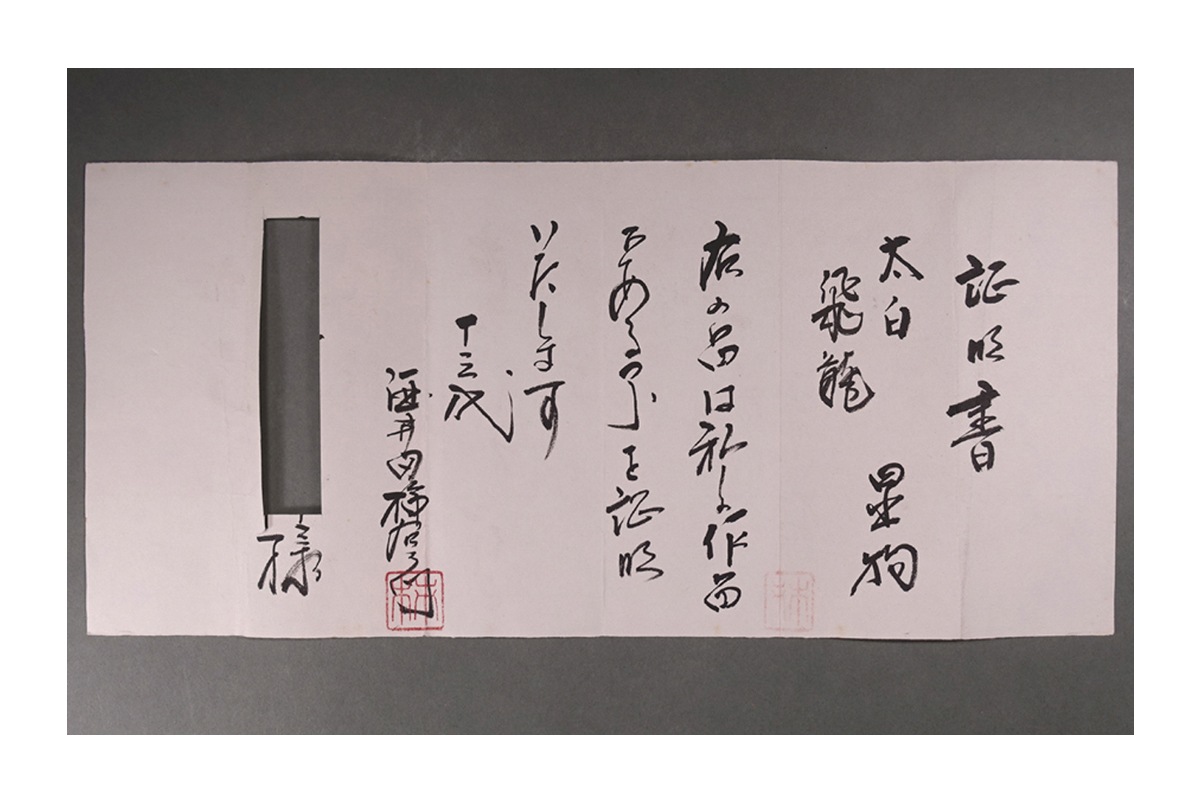 証明書
太白 置物
飛龍
右の品は私しの作品
である事を証明
いたします
十三代
酒井田柿右衛門
様